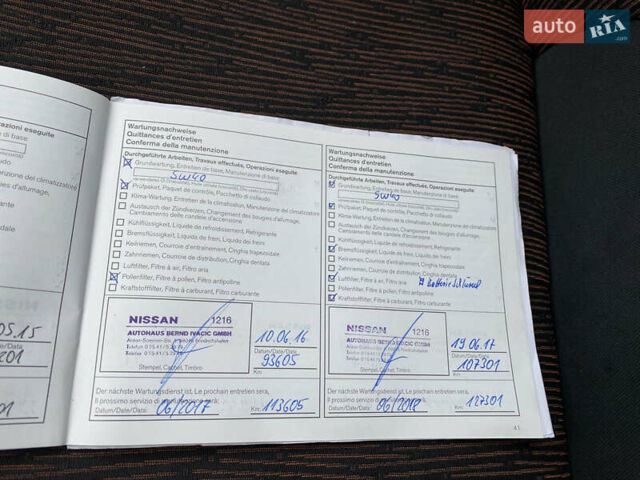 auto RIA
.com
razioni eseguite
di base
enzione del climatizzatore
05.15
201
01
Wartungsnachweise
Quittances d'entretien
Conferma della manutenzione
Durchgeführte Arbeiten, Travaux effectués, Operazioni eseguite
Grundwartung, Entretien de base, Manutenzione di base
5W40
Prüfpaket, Paquet de contrôle, Pacchetto di collaudo
Klima-Wartung, Entretien de la climatisation, Manutenzione del climatizzatore
Austausch der Zündkerzen, Changement des bougies d'allumage,
Cambiamento delle candele d'accensione
Kühlflüssigkeit, Liquide de refroidissement, Refrigerante
Bremsflüssigkeit, Liquide de frein, Liquido dei freni
Keilriemen, Courroie d'entraînement, Cinghia trapezoidale
Zahnriemen, Courroie de distribution, Cinghia dentata
Luftfilter, Filtre à air, Filtro aria
Pollenfilter, Filtre à pollen, Filtro antipolline
Kraftstofffilter, Filtre à carburant, Filtro carburante
NISSAN 1216
AUTOHAUS BERND IVACIC GMBH
Stempel, Cachet, Timbro
10.06.16
Datum/Date/Data:
93605
Km:
Der nächste Wartungsdienst ist, Le prochain entretien sera,
Il prossimo servizio di manutenzione sarà,
Datum/Date/Data: 06/2017 Km: 113605
Wartungsnachweise
Quittances d'entretien
Conferma della manutenzione
Durchgeführte Arbeiten, Travaux effectués, Operazioni eseguite
Grundwartung, Entretien de base, Manutenzione di base
5W40
Prüfpaket, Paquet de contrôle, Pacchetto di collaudo
Klima-Wartung, Entretien de la climatisation, Manutenzione del climatizzatore
Austausch der Zündkerzen, Changement des bougies d'allumage,
Cambiamento delle candele d'accensione
Kühlflüssigkeit, Liquide de refroidissement, Refrigerante
Bremsflüssigkeit, Liquide de frein, Liquido dei freni
Keilriemen, Courroie d'entraînement, Cinghia trapezoidale
Zahnriemen, Courroie de distribution, Cinghia dentata
Luftfilter, Filtre à air, Filtro aria
Pollenfilter, Filtre à pollen, Filtro antipolline
Kraftstofffilter, Filtre à carburant, Filtro carburante
NISSAN 1216
AUTOHAUS BERND IVACIC GMBH
Stempel, Cachet, Timbro
19.06.17
Datum/Date/Data:
107301
Km:
Der nächste Wartungsdienst ist, Le prochain entretien sera,
Il prossimo servizio di manutenzione sarà,
Datum/Date/Data: 06/2018 Km: 127301
41